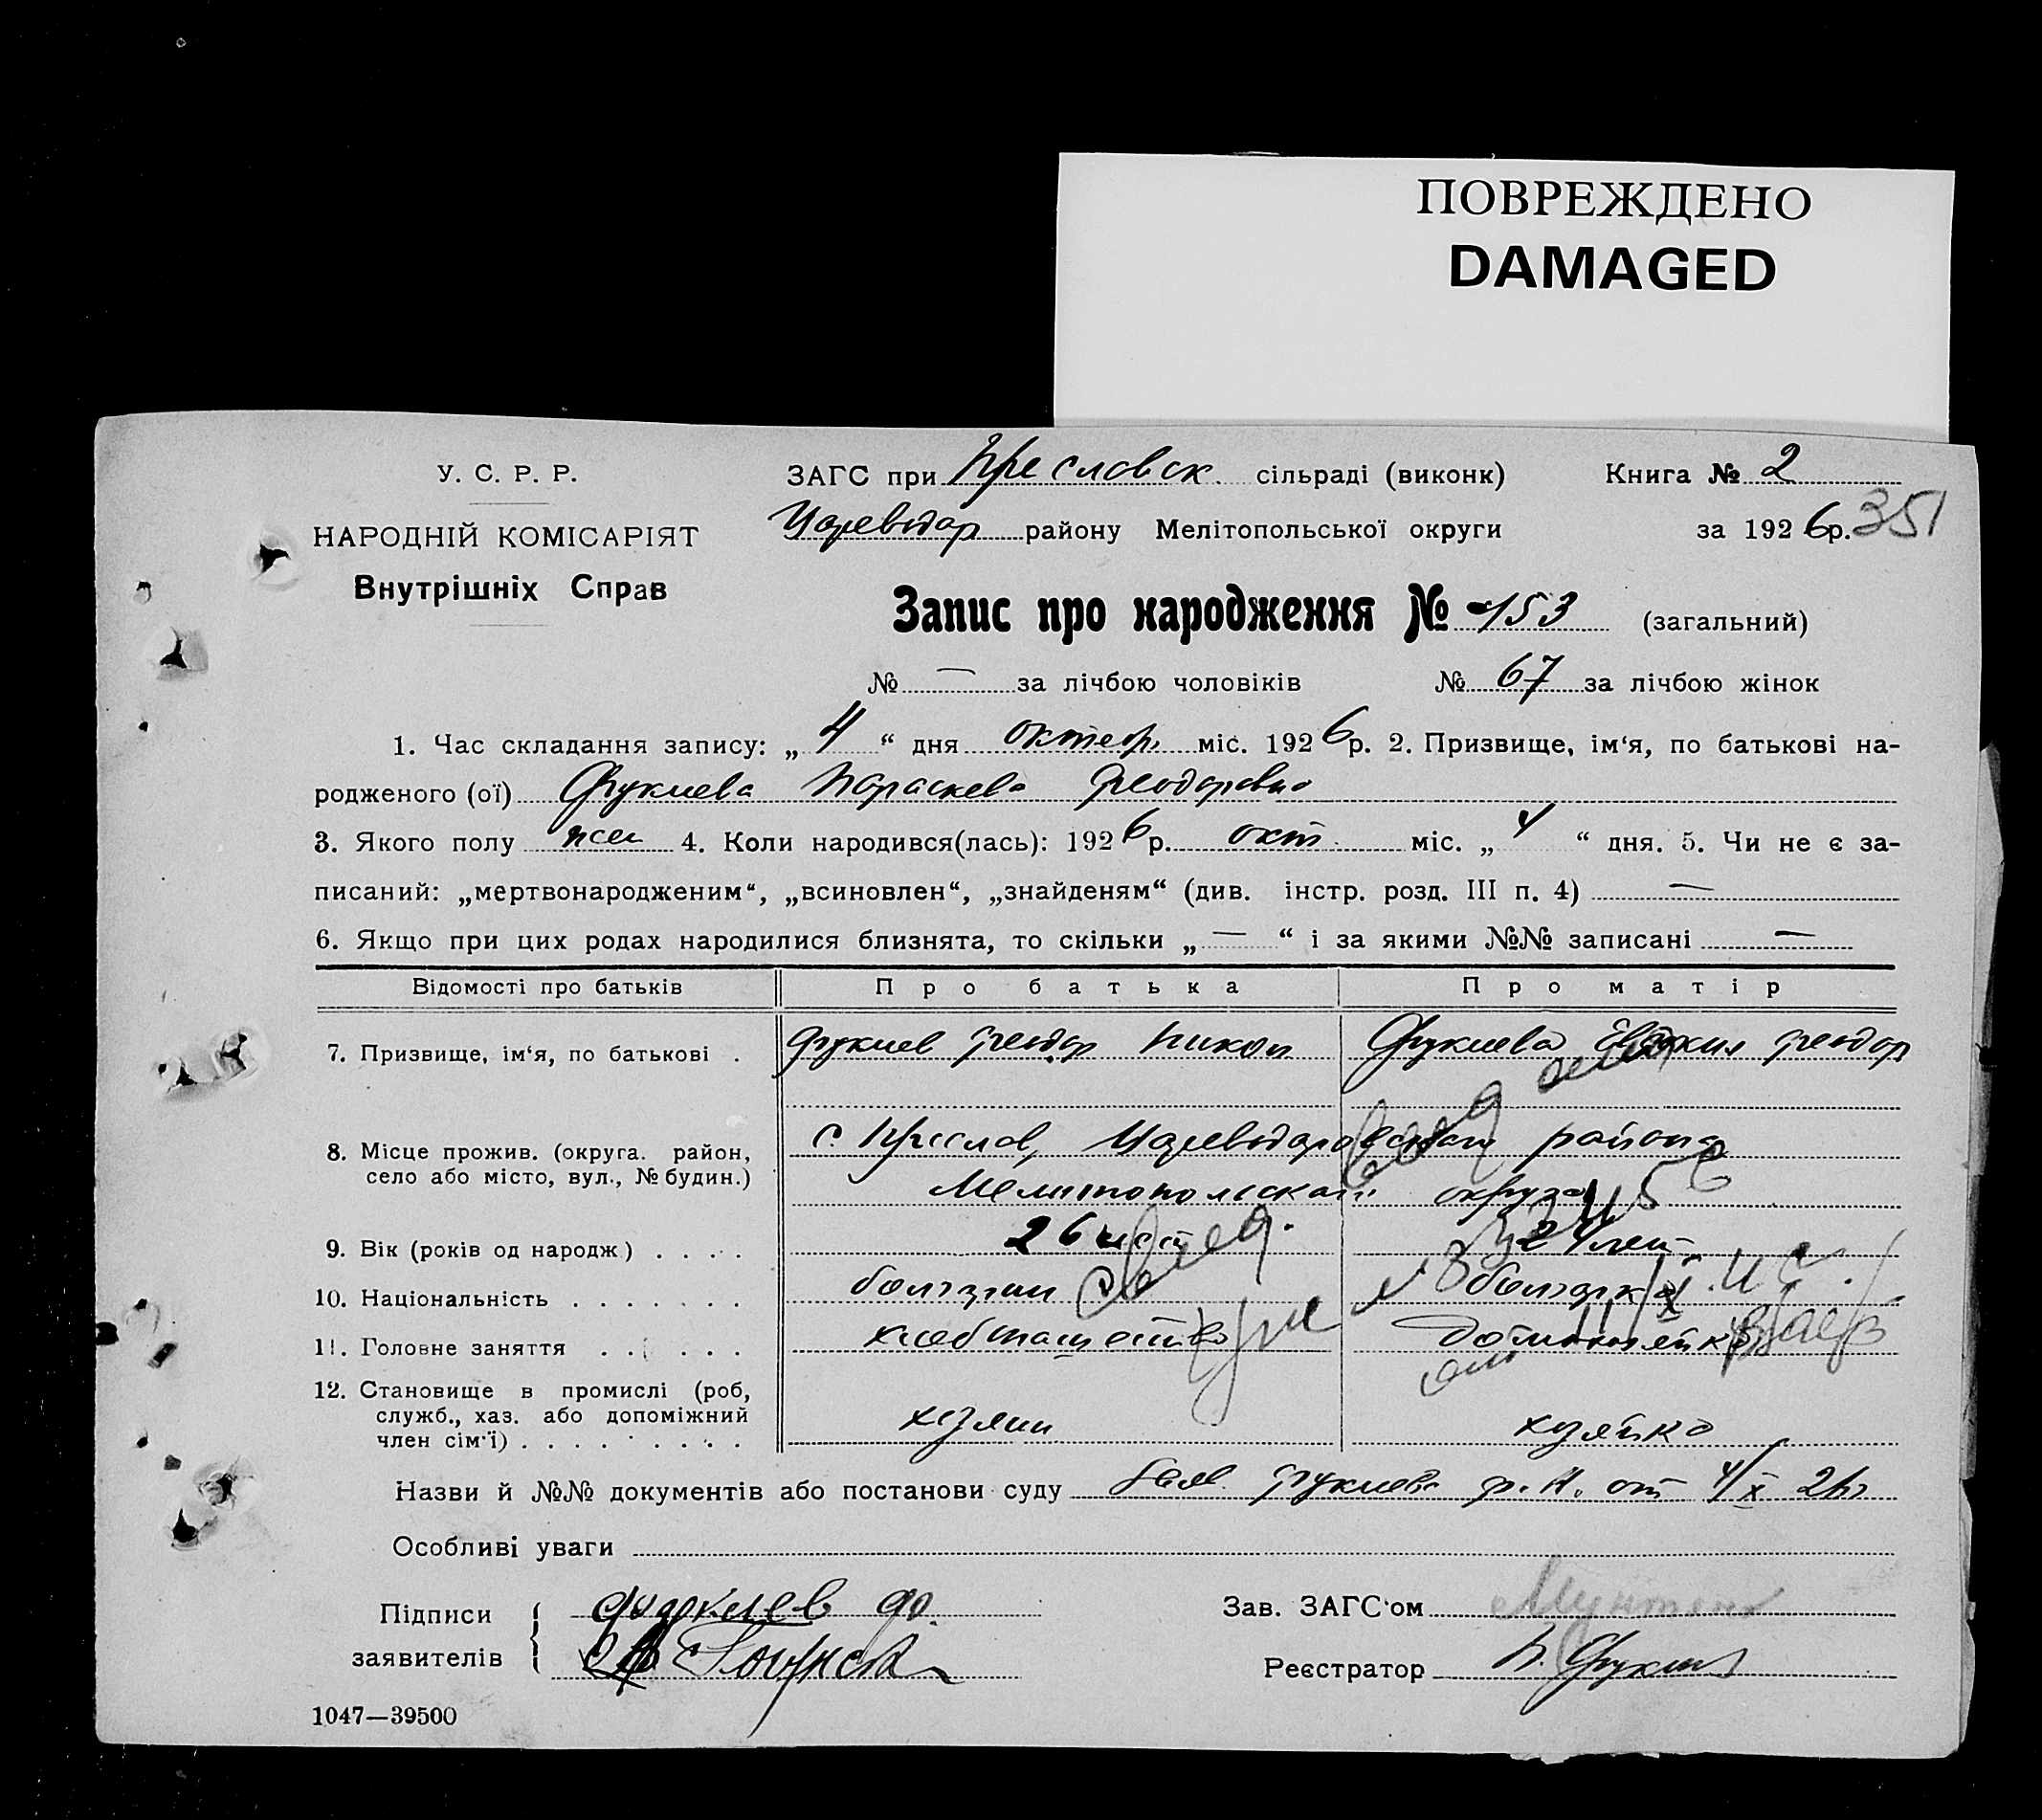 ПОВРЕЖДЕНО
DAMAGED
У. С. Р. Р.
НАРОДНІЙ КОМІСАРІЯТ
Внутрішніх Справ
ЗАГС при Преславск. сільраді (виконк)
Книга № 2
Царевдар району Мелітопольської округи
за 1926р. 351
Запис про народження № 153 (загальний)
№ — за лічбою чоловіків № 67 за лічбою жінок
1. Час складання запису: „4“ дня октяр. міс. 1926р. 2. Призвище, ім‘я, по батькові на-
родженого (ої) Фукиева Параскева Феодоровна
3. Якого полу жен 4. Коли народився(лась): 1926р. окт. міс. „4“ дня. 5. Чи не є за-
писаний: „мертвонародженим“, „всиновлен“, „знайденям“ (див. інстр. розд. III п. 4) —
6. Якщо при цих родах народилися близнята, то скільки „—“ і за якими №№ записані —
Відомості про батьків Про батька Про матір
7. Призвище, ім‘я, по батькові . Фукиев Феодор Никол Фукиева Евдокия Феодор
8. Місце прожив. (округа. район,
село або місто, вул., № будин.)
с. Преслав, Царевдаровского района
Мелитопольской округа
9. Вік (років од народж) . . . . 26 лет 24 лет
10. Національність . . . . . . . болгарин болгарка
11. Головне заняття . . . . . . хлебопашество домохозяйка
12. Становище в промислі (роб,
служб., хаз. або допоміжний
член сім‘ї) . . . . . . . . . хозяин хозяйка
Назви й №№ документів або постанови суду Фукиева Ф. Н. от 4/X 26г
Особливі уваги
Підписи
заявителів
Зав. ЗАГС‘ом
Реєстратор
1047—39500